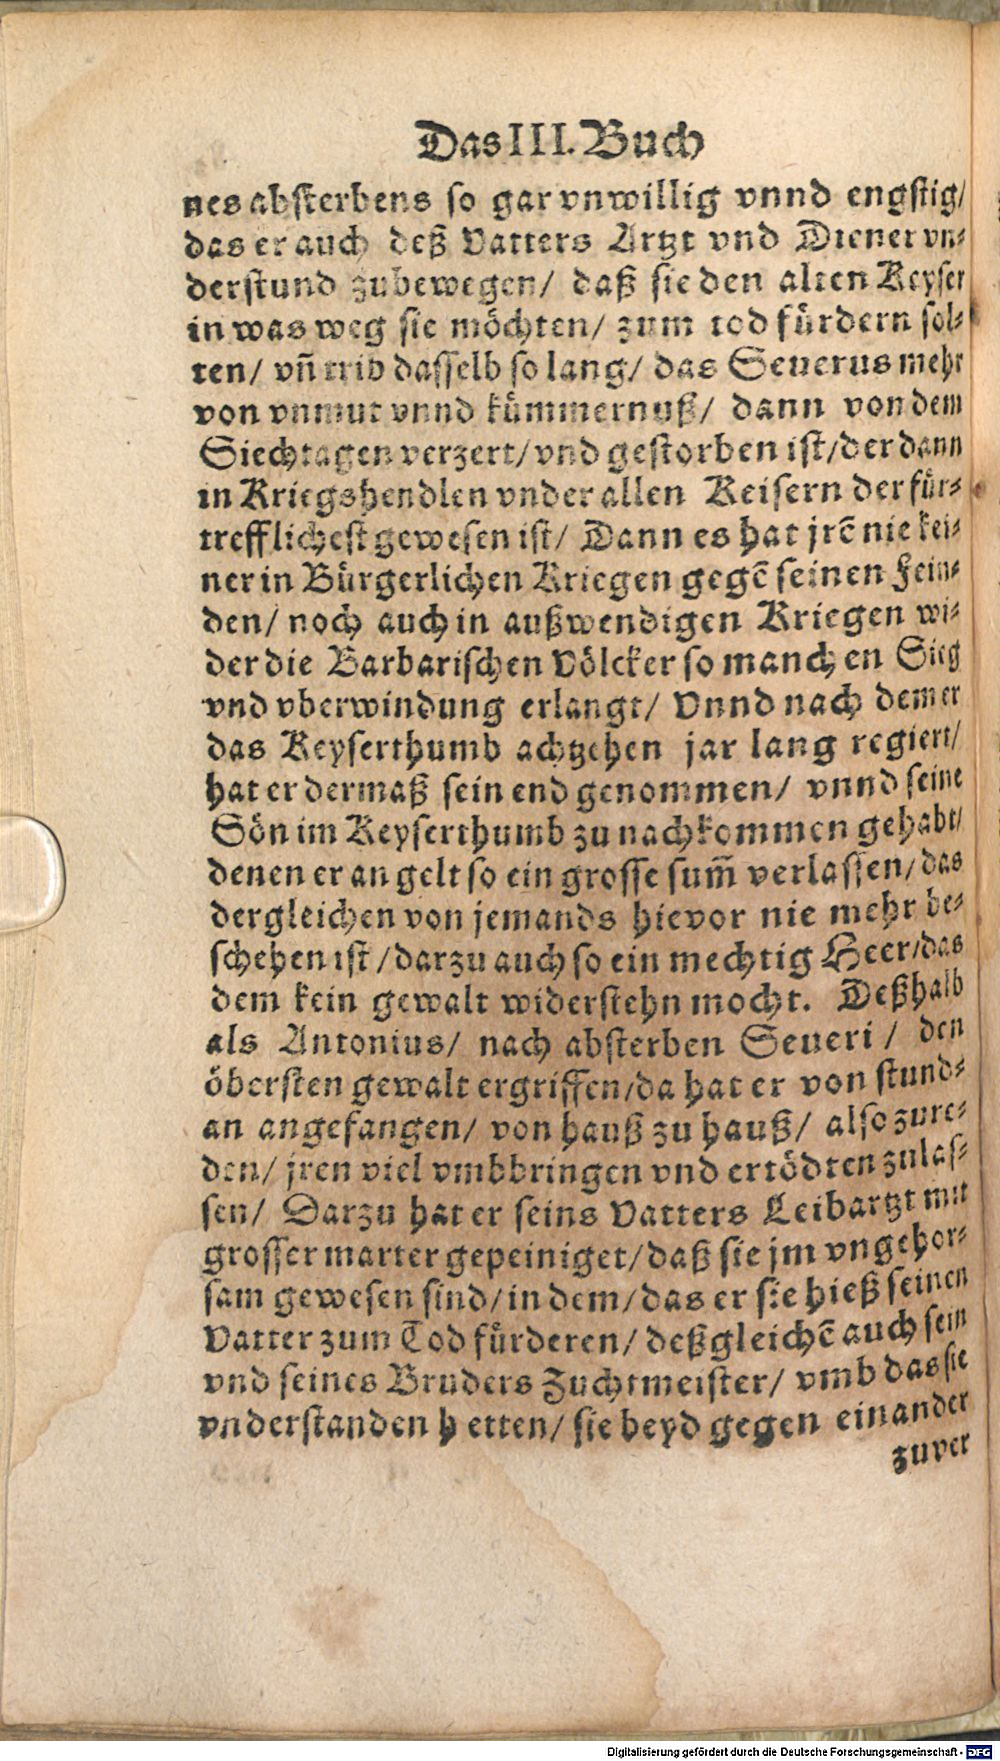 Das III. Buch
nes absterbens so gar vnwillig vnnd engstig/
das er auch deß Vatters Artzt vnd Diener vn⸗
derstund zubewegen/ daß sie den alten Keyser
in was weg sie möchten/ zum tod fürdern sol⸗
ten/ vñ trib dasselb so lang/ das Seuerus mehr
von vnmut vnnd kümmernuß/ dann von dem
Siechtagen verzert/ vnd gestorben ist/ der dann
in Kriegshendlen vnder allen Keisern der für⸗
trefflichest gewesen ist/ Dann es hat jrẽ nie kei⸗
ner in Bürgerlichen Kriegen gegẽ seinen Fein⸗
den/ noch auch in außwendigen Kriegen wi⸗
der die Barbarischen Völcker so manchen Sieg
vnd vberwindung erlangt/ Vnnd nach dem er
das Keyserthumb achtzehen jar lang regiert/
hat er dermaß sein end genommen/ vnnd seine
Sön im Keyserthumb zu nachkommen gehabt/
denen er an gelt so ein grosse sum̃ verlassen/ das
dergleichen von jemands hievor nie mehr be⸗
schehen ist/ darzu auch so ein mechtig Heer/ das
dem kein gewalt widerstehn mocht. Deßhalb
als Antonius/ nach absterben Seueri/ den
öbersten gewalt ergriffen/ da hat er von stund⸗
an angefangen/ von hauß zu hauß/ also zure⸗
den/ jren viel vmbbringen vnd ertödten zulas⸗
sen/ Darzu hat er seins Vatters Leibartzt mit
grosser marter gepeiniget/ daß sie jm vngehor⸗
sam gewesen sind/ in dem/ das er sie hieß seinen
Vatter zum Tod fürderen/ deßgleichẽ auch sein
vnd seines Bruders Zuchtmeister/ vmb das sie
vnderstanden hetten/ sie beyd gegen einander
zuver
Digitalisierung gefördert durch die Deutsche Forschungsgemeinschaft - DFG